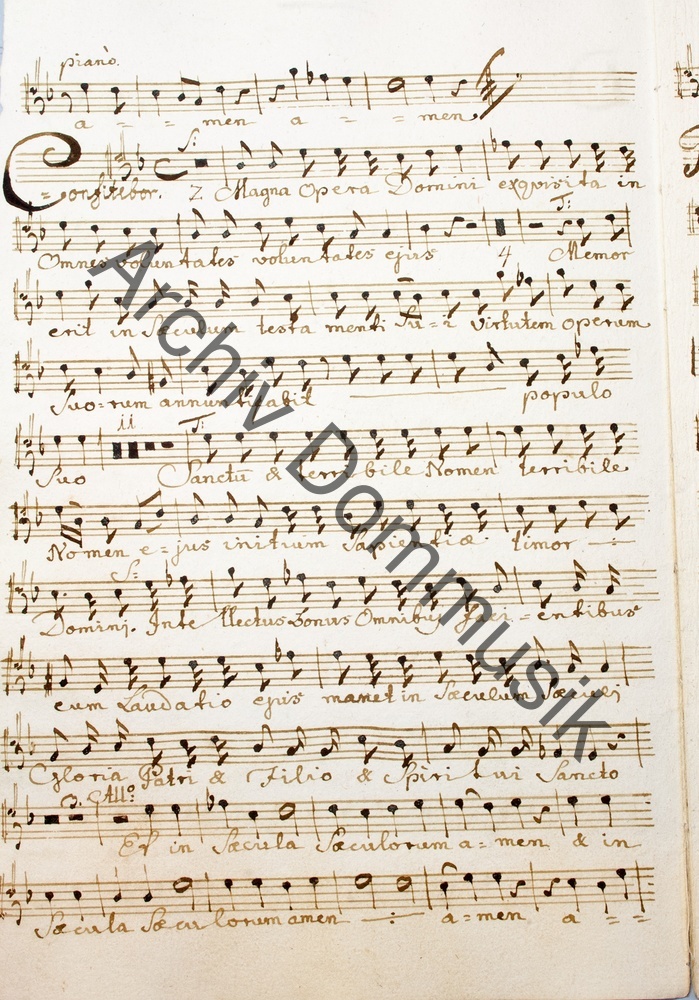 piano.
a - - men a - - men
S:
Confitebor. 2 Magna Opera Domini exquisita in
T:
Omnes voluntates voluntates ejus 4 Memor
erit in Sæculum testa menti Su = i virtutem operum
Suo = rum annuntiabit populo
11 T:
Suo Sanctũ & terribile Nomen terribile
Nomen e = jus initium Sapientiæ timor
S:
Domini. Inte llectus bonus Omnibus faci = entibus
eum Laudatio ejus manet in Sæculum Sæculi
Gloria Patri & Filio & Spiritui Sancto
3. All:o
Et in Sæcula Sæculorum a = men & in
Sæcula Sæculorum amen ÷ a = men a = =
Archiv Dommusik